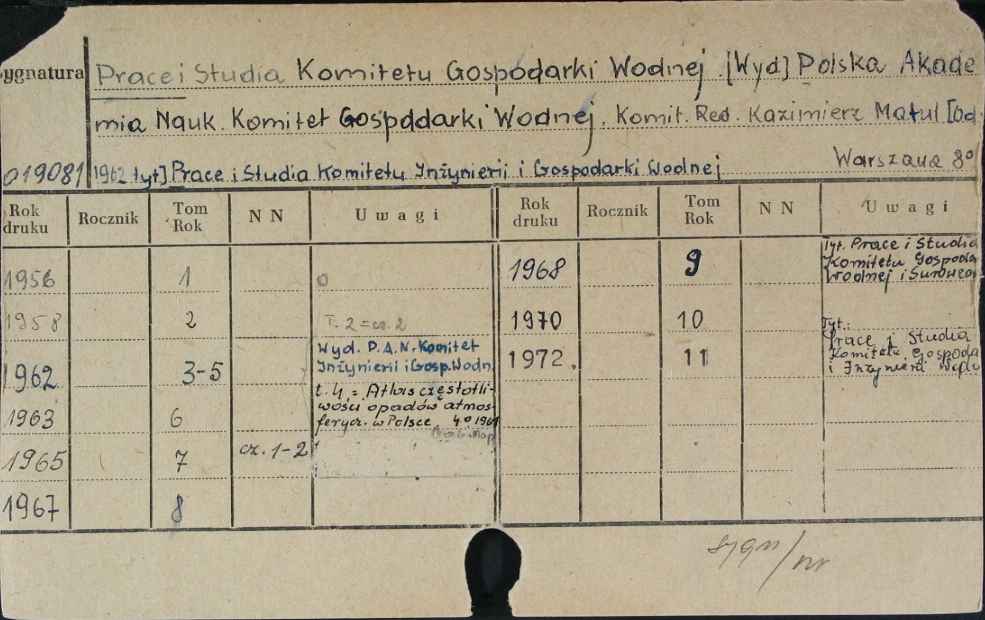 ygnatura Prace i Studia Komitetu Gospodarki Wodnej. [Wyd] Polska Akade
mia Nauk. Komitet Gospodarki Wodnej. Komit. Red. Kazimierz Matul [od
019081 1962 tyt] Prace i Studia Komitetu Inżynierii i Gospodarki Wodnej Warszawa 8°
Rok druku Rocznik Tom Rok NN Uwagi Rok druku Rocznik Tom Rok NN Uwagi
1956 1 0
1958 2 T. 2 = cz. 2
1962 3-5 Wyd. P.A.N. Komitet
Inżynierii i Gosp. Wodn.
t. 4. = Atlas częstotli-
wości opadów atmos-
ferycz. w Polsce 4° 196
1963 6
1965 7 cz. 1-2
1967 8
1968 9 Tyt. Prace i Studia
Komitetu Gospoda
Wodnej i Surowca
1970 10
1972. 11 Tyt.:
Prace i Studia
Komitetu Gospoda
i Inżynierii